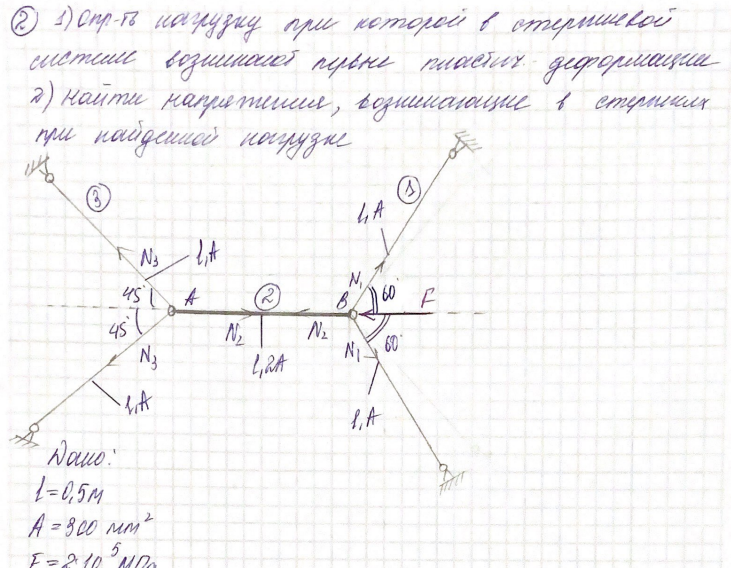 ② 1) Опр-ть нагрузку при которой в стержневой
системе возникают первые пластич. деформации
2) Найти напряжения, возникающие в стержнях
при найденной нагрузке
③
①
l,A
N₃
l,A
45°
A
②
N₁
B
60°
F
45°
N₂
N₂
60°
N₃
l,2A
N₁
l,A
l,A
Дано:
l=0,5м
A=300 мм²
E=2·10⁵МПа